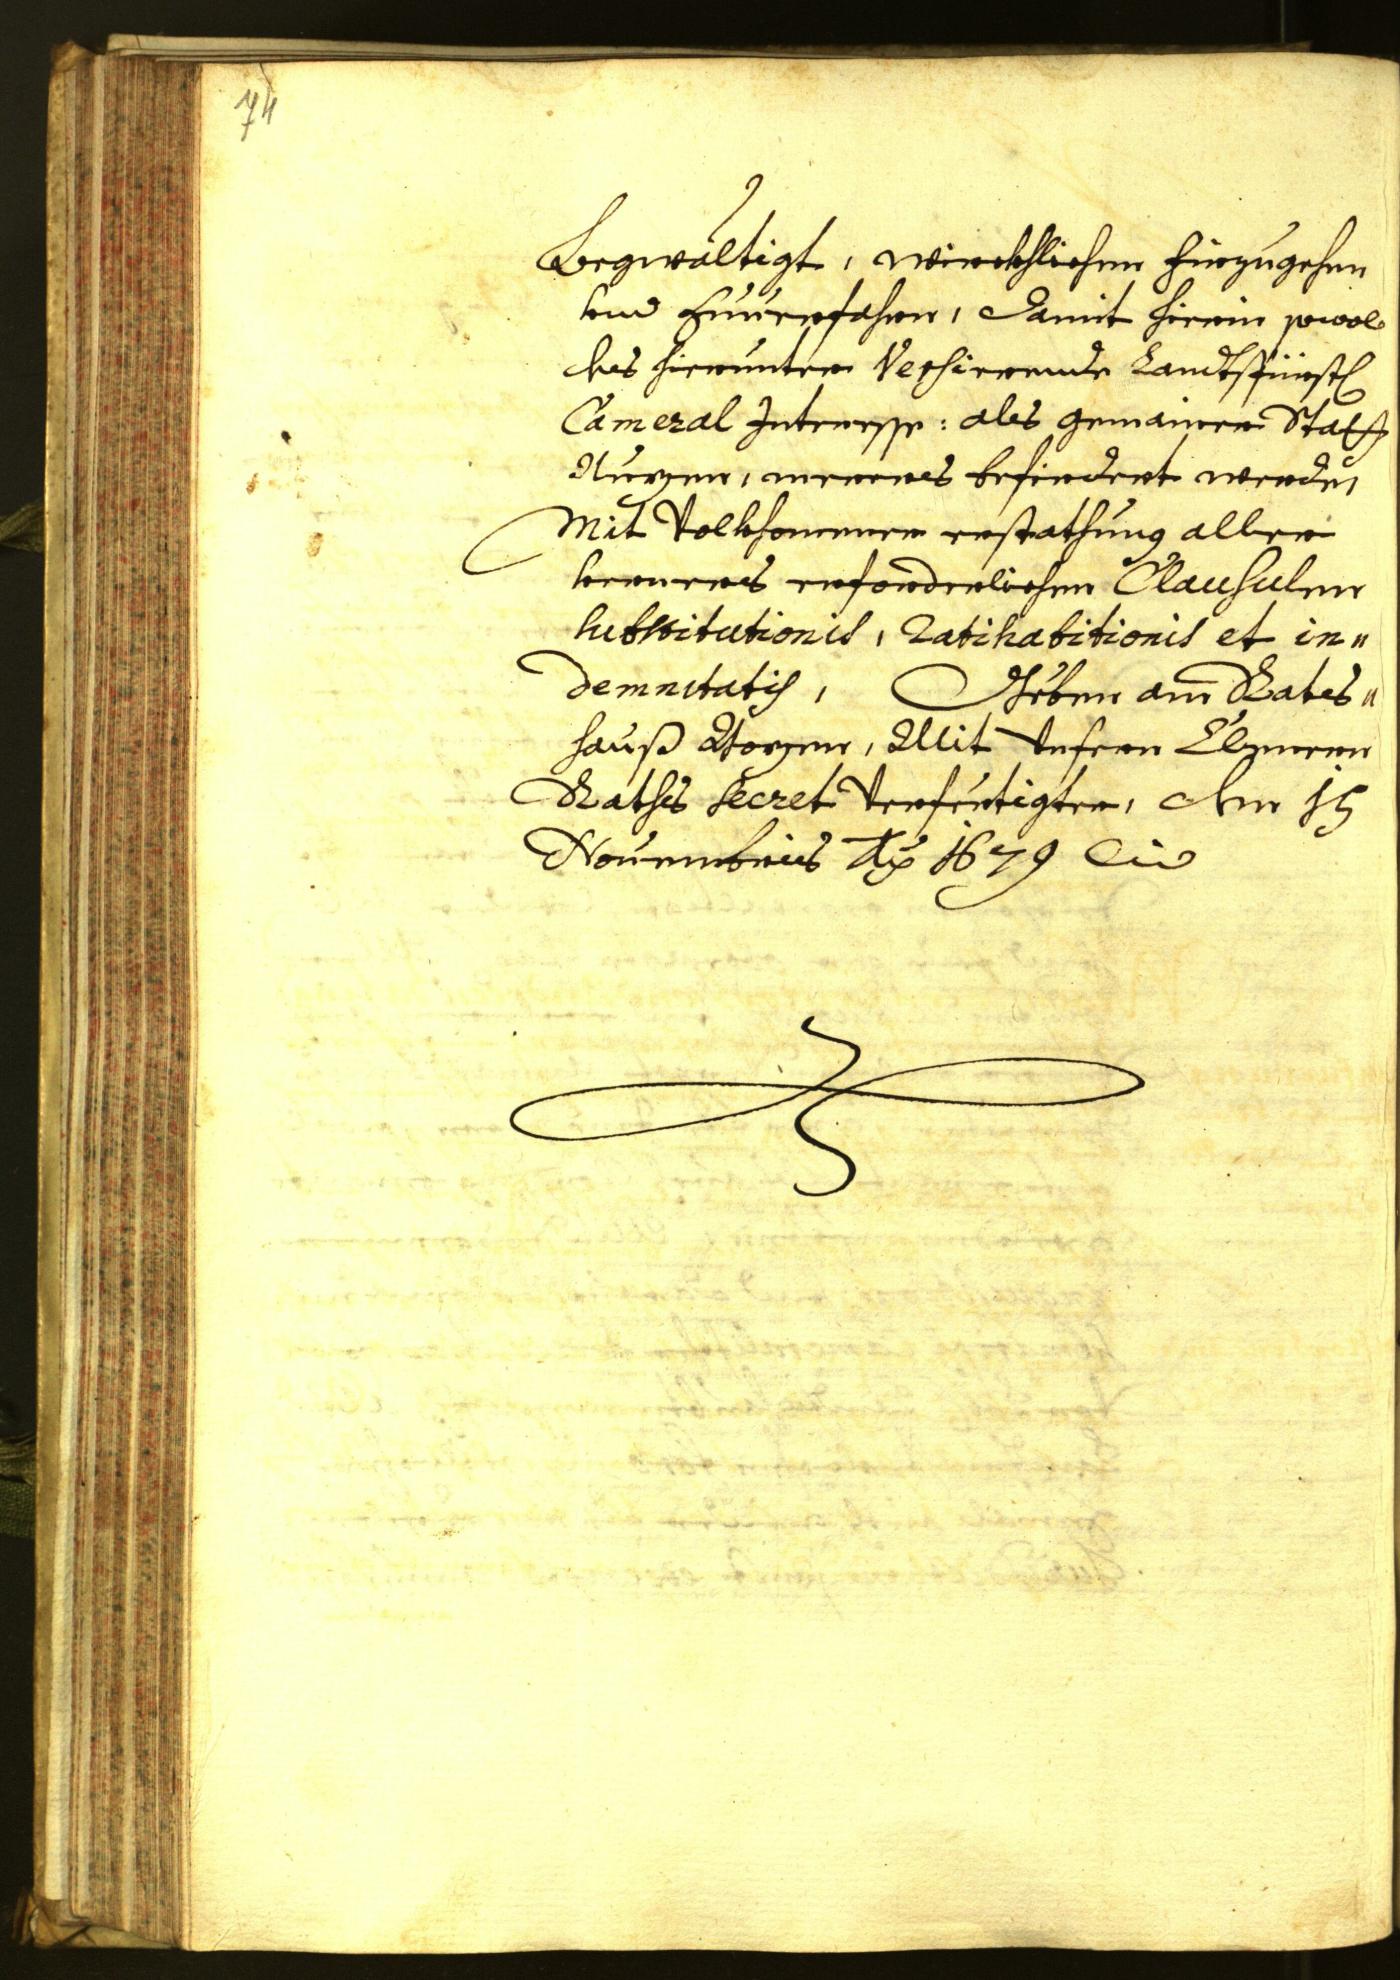 74
Begwaltigt, würckhlichen fürzugehen
und zuuerfahren, damit hierin sowol
das hierunter Versierende Landtsfürstl
Cameral Interesse: als gemainer Statt
Nuzen, merers befirdert werde,
Mit Volkhomner erstathung aller
herinen erforderlichen Clausulen
substitutionis, Ratihabitionis et in"
demnitatis, Geben am Rats"
hauß Bozen, Mit unserm Clainern
Raths secret Verfertigter, den 15
Nouembris Ao 1679